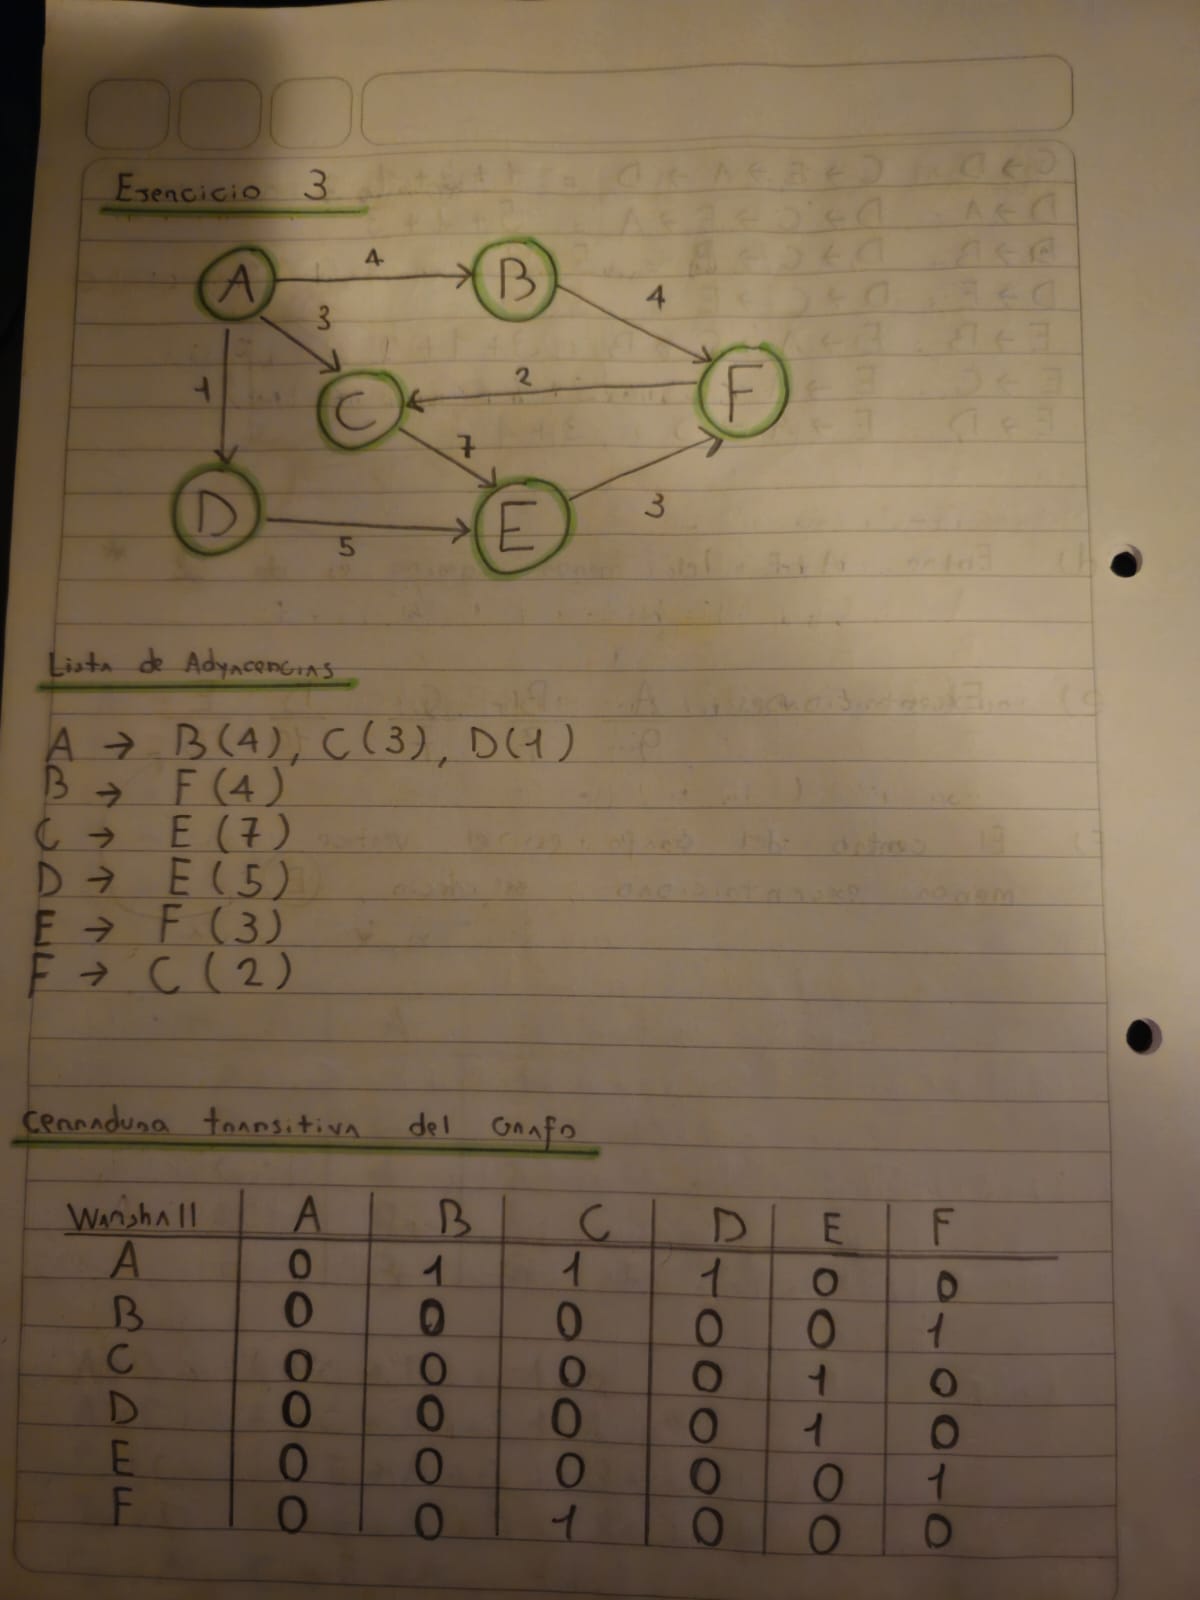 Ejercicio 3
A 4 B
3 4
1 C 2 F
7
D E
5 3
Lista de Adyacencias
A → B(4), C(3), D(1)
B → F(4)
C → E(7)
D → E(5)
E → F(3)
F → C(2)
Cerradura transitiva del Grafo
Warshall A B C D E F
A 0 1 1 1 0 0
B 0 0 0 0 0 1
C 0 0 0 0 1 0
D 0 0 0 0 1 0
E 0 0 0 0 0 1
F 0 0 1 0 0 0